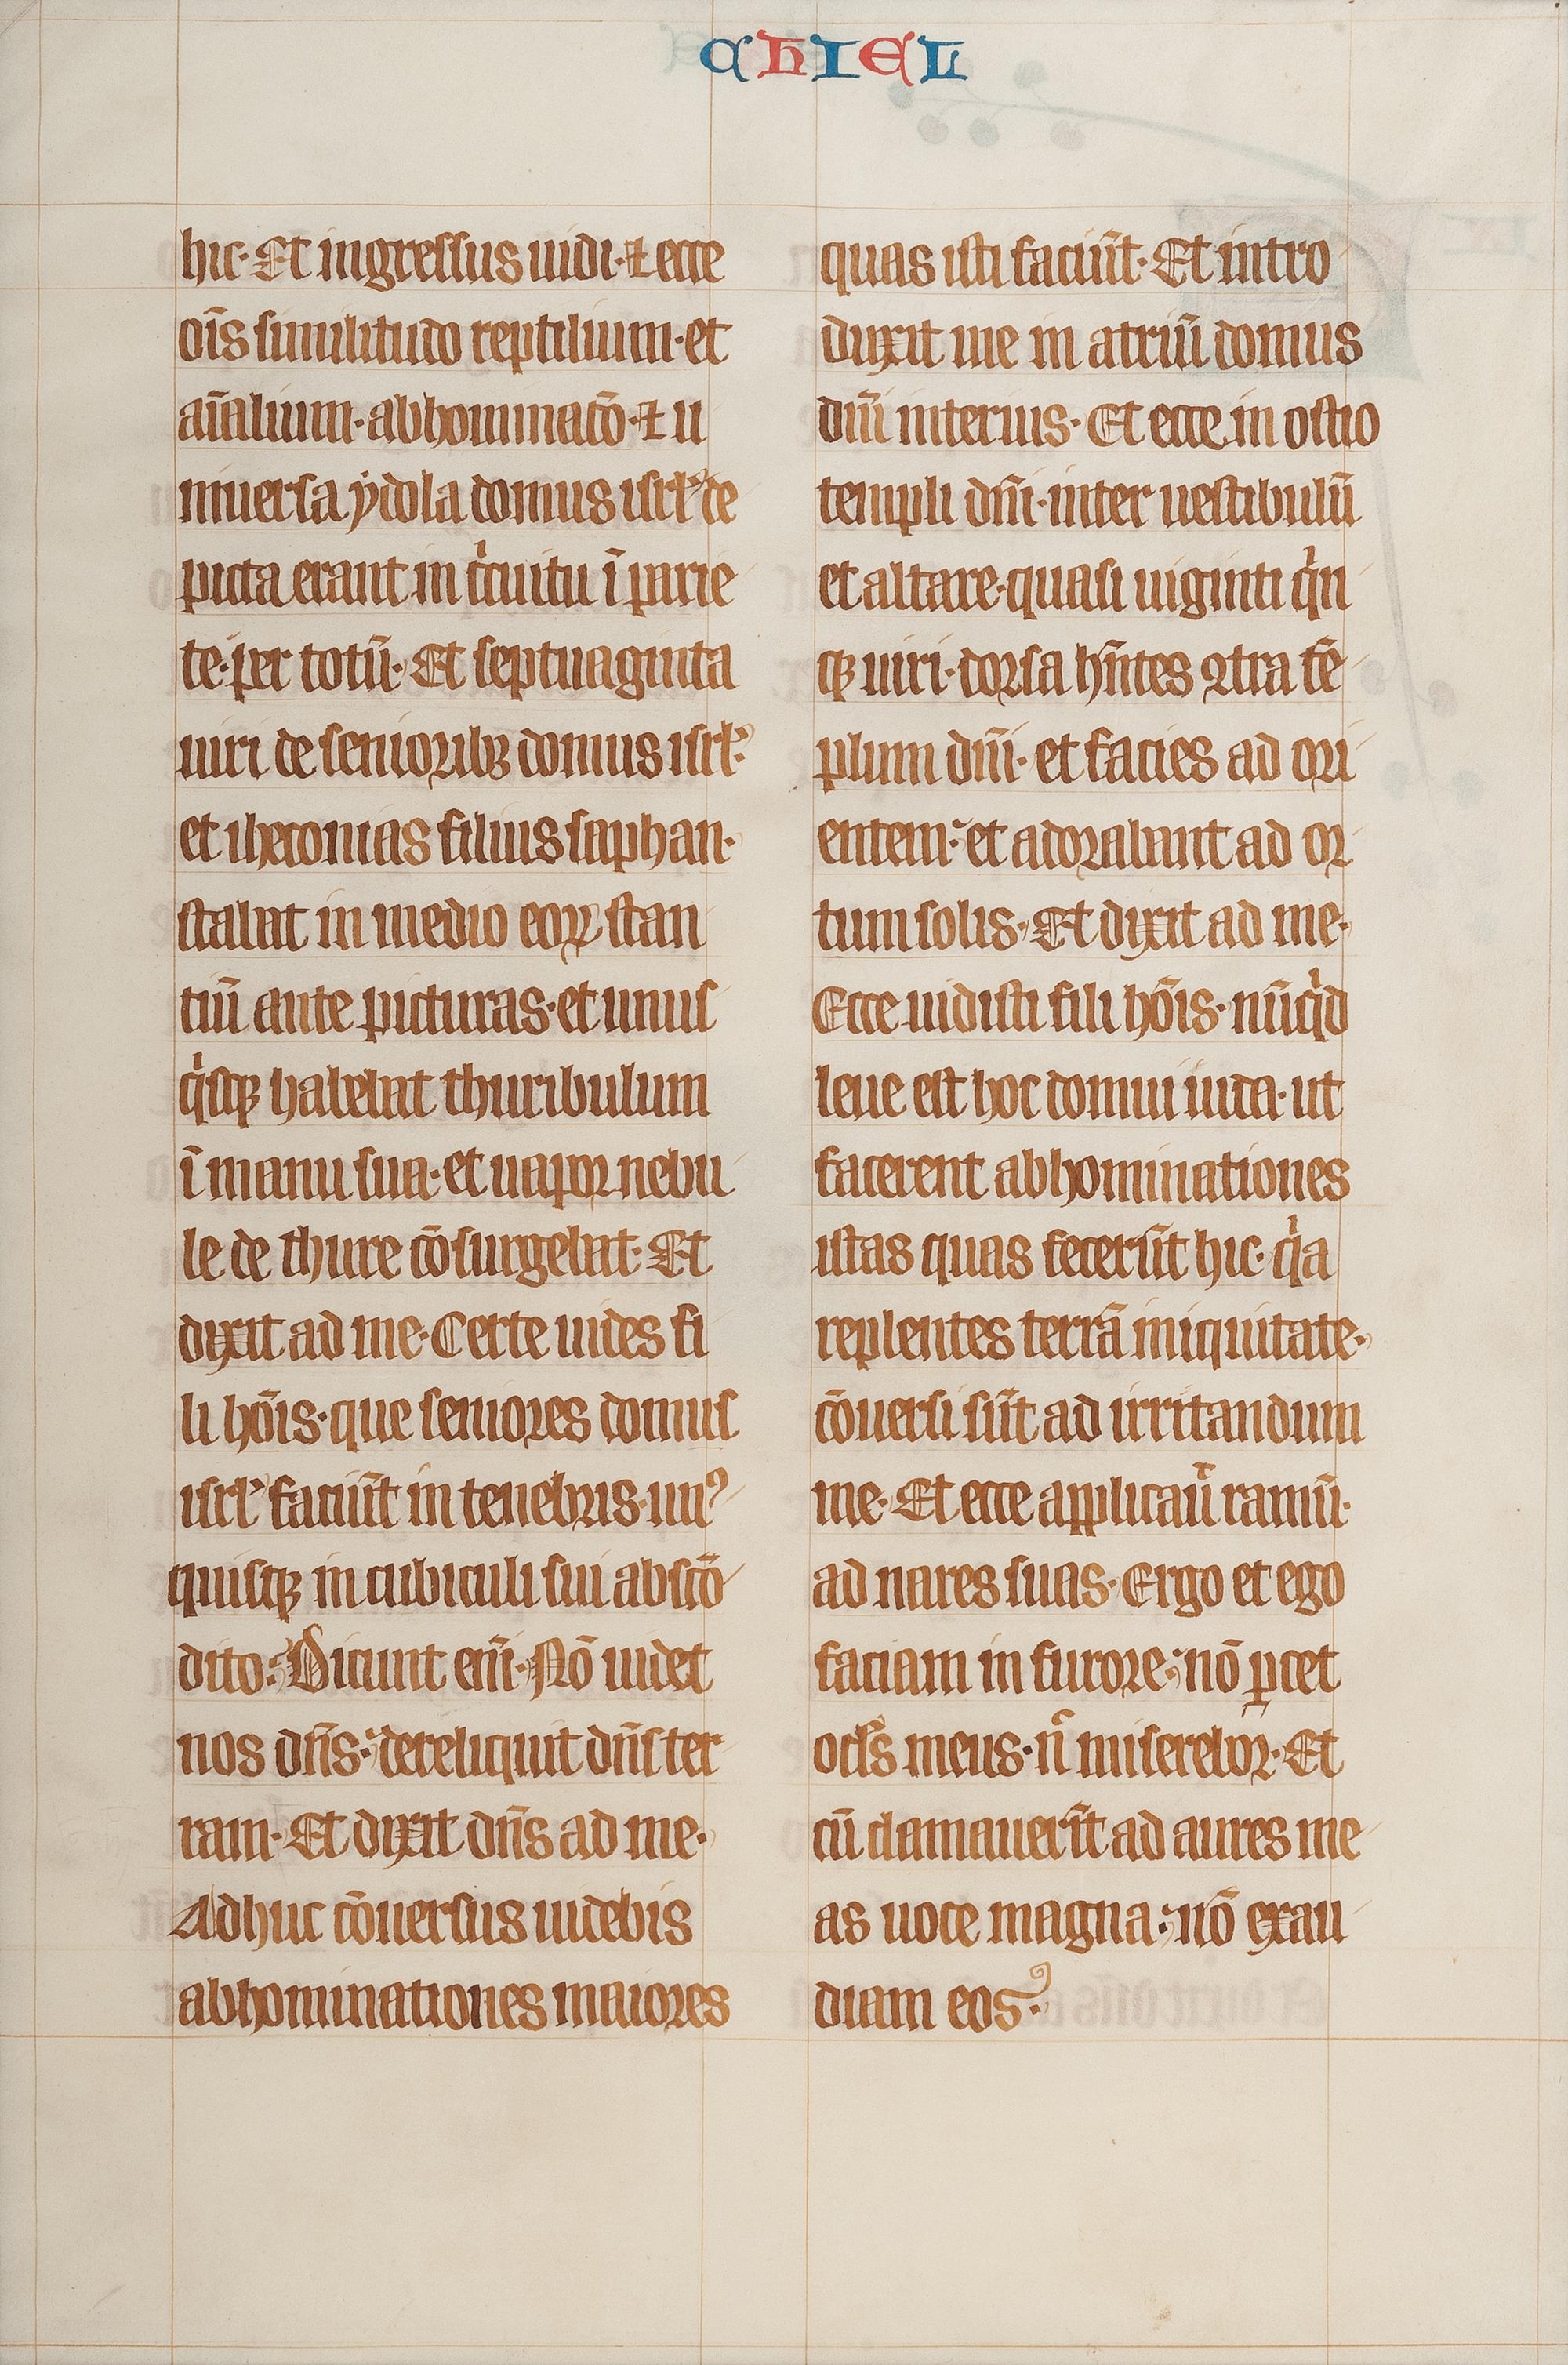 CHIEL
hic· Et ingressus uidi· ⁊ ecce
oı̄s similitudo reptilium· et
aı̄alium· abhominacō· ⁊ u
niuersa ẏdola domus isrł de
picta erant in cͥcuitu ī parie
te· per totū· Et septuaginta
uiri de senioribꝫ domus isrł·
et iheconias filius saphan·
stabat in medio eoꝝ stan
tiū ante picturas· et unus
qͥsqꝫ habebat thuribulum
ī manu sua· et uapor nebu
le de thure cōsurgebat· Et
dixit ad me· Certe uides fi
li hōis· que seniores domus
isrł faciūt in tenebris· unꝰ
quisqꝫ in cubiculi sui abscō
dito· Dicunt enı̄· Nō uidet
nos dn̄s· dereliquit dn̄s ter
ram· Et dixit dn̄s ad me·
Adhuc cōuersus uidebis
abhominationes maiores
quas isti faciūt· Et intro
duxit me in atriū domus
dnı̄ interius· Et ecce in ostio
templi dn̄i· inter uestibulū
et altare· quasi uiginti qͥn
qꝫ uiri· dorsa hn̄tes ꝯtra tē
plum dn̄i· et facies ad ori
entem· et adorabant ad or
tum solis· Et dixit ad me·
Ecce uidisti fili hōis· nūqͥd
leue est hoc domui iuda· ut
facerent abhominationes
istas quas fecerūt hic· qͥa
replentes terrā iniquitate·
cōuersi sūt ad irritandum
me· Et ecce applicaūt ramū·
ad nares suas· Ergo et ego
faciam in furore· nō ꝑcet
ocłs meus· n̄ miserebor· Et
cū clamauerı̄t ad aures me
as uoce magna· nō exau
diam eos·